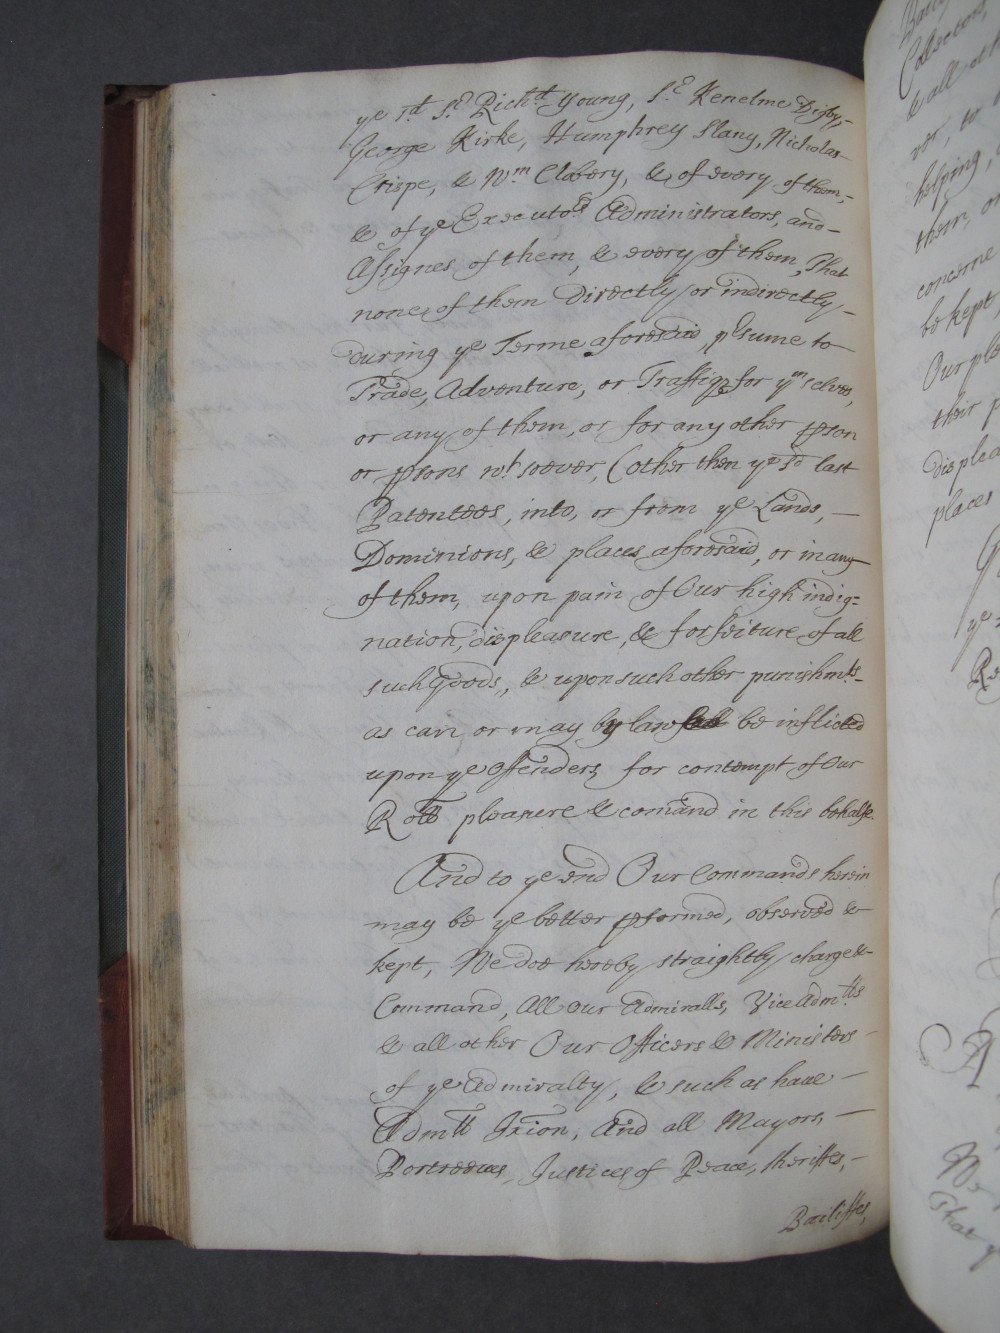 ye sd. Sr. Richd. Young, Sr. Kenelme Digby,
George Kirke, Humphrey Slany, Nicholas
Crispe, & Wm. Clobery, & of every of them,
& of ye Executors Administrators, and
Assignes of them, & every of them, That
none of them Directly or indirectly
during ye Terme aforesaid, p'sume to
Trade, Adventure, or Traffiq for ym selves,
or any of them, or for any other pson
or psons wt. soever, (other then ye sd last
Patentees, into, or from ye Lands, —
Dominions, & places aforesaid, or in any
of them, upon pain of Our high indig=
nation, displeasure, & forfeiture of all
such Goods, & upon such other punishmts.
as can or may by law be inflicted
upon ye Offenders for contempt of Our
Roll pleasure & comand in this behalfe.
And to ye end Our Commands herein
may be ye better pformed, observed &
kept, We doe hereby straightly charge &
Command, All Our Admiralls, Vice Admlls
& all other Our Officers & Ministers
of ye Admiralty, & such as have —
Admll Jxion, And all Mayors, —
Portreeves, Justices of Peace, Sheriffes, —
Bailiffes,
Collectors,
& all oth
helping,
them, or
concerne
be kept,
Our ple
their p
displea
places